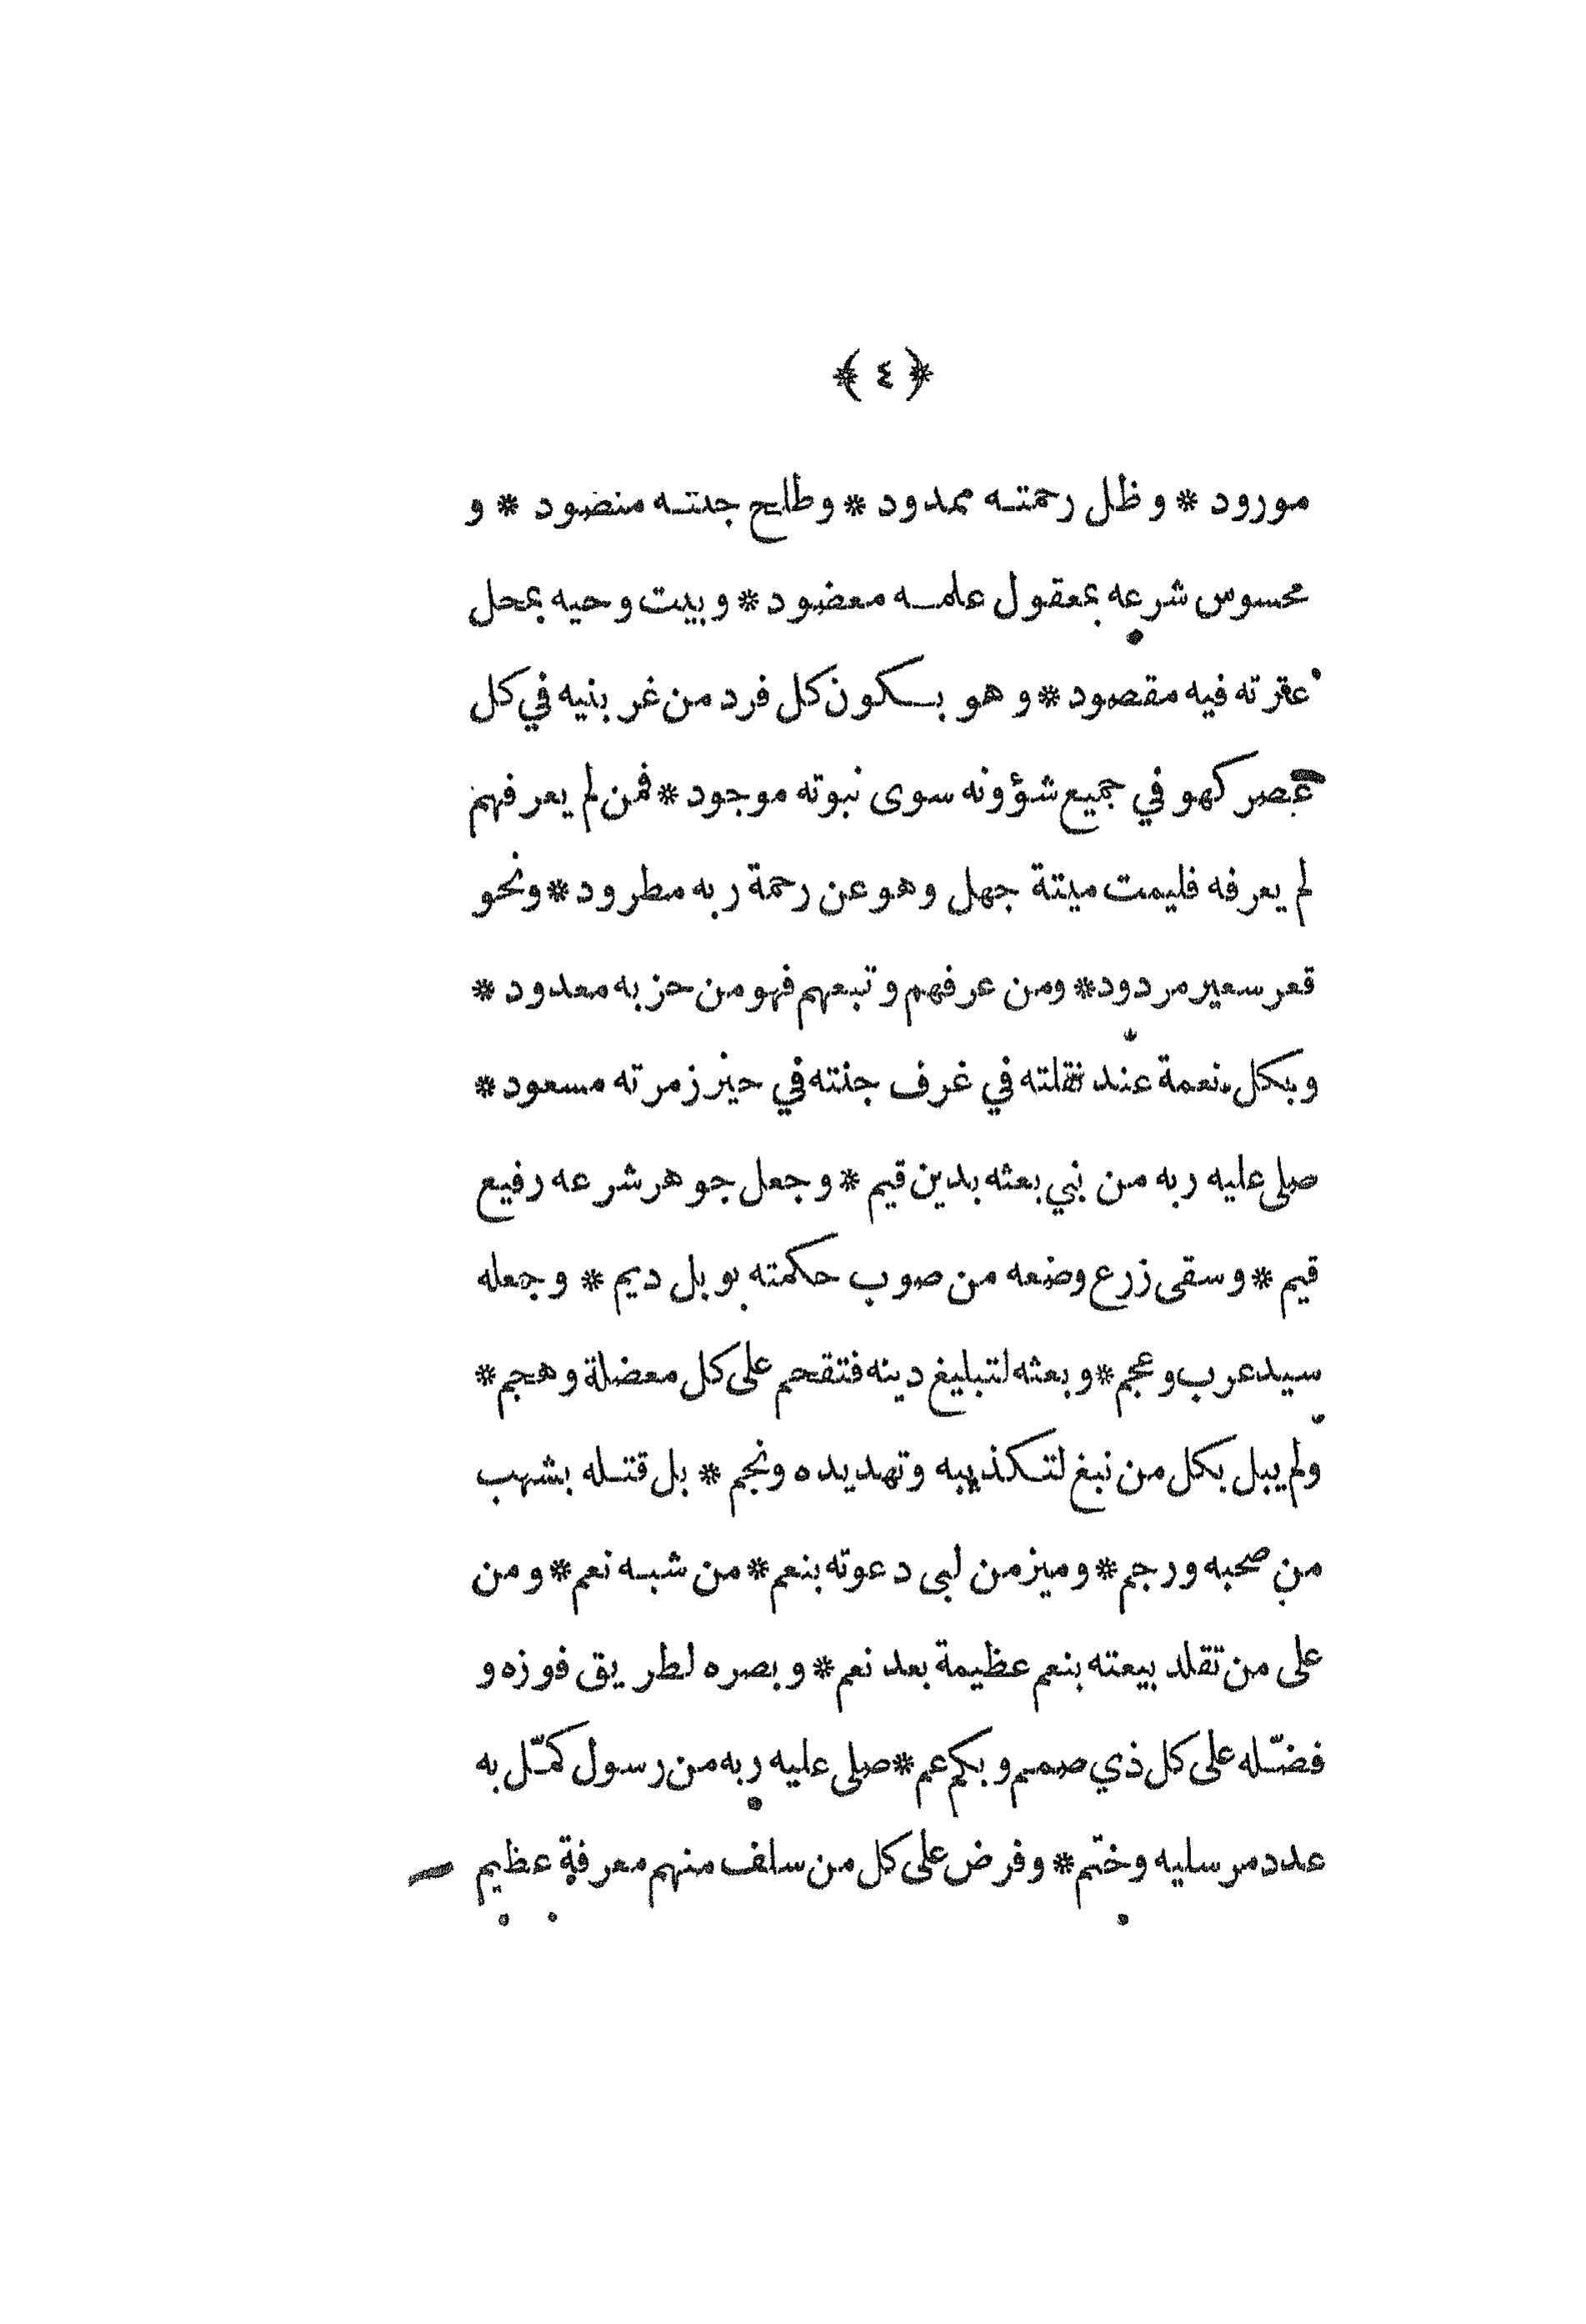 ﴿ ٤ ﴾
مورود * و ظل رحمتـه ممدود * وطلح جنتـه منضود * و
محسوس شرعه بمعقول علمـه معضود * وبيت وحيه بمحل
عقرته فيه مقصود * و هو بـكون كل فرد من غر بنيه في كل
عصر كهو في جميع شؤونه سوى نبوته موجود * فمن لم يعرفهم
لم يعرفه فليمت ميتة جهل وهو عن رحمة ربه مطرود * ونحو
قعر سعير مردود * ومن عرفهم وتبعهم فهو من حزبه معدود *
وبكل نعمة عند نقلته في غرف جنته في حيز زمرته مسعود *
صلى عليه ربه من نبي بعثه بدين قيم * وجعل جوهر شرعه رفيع
قيم * وسقى زرع وضعه من صوب حكمته بوبل ديم * وجعله
سيد عرب وعجم * وبعثه لتبليغ دينه فتقحم على كل معضلة وهجم *
ولم يبل بكل من نبغ لتـكذيبه وتهديده ونجم * بل قتـله بشهب
من صحبه ورجم * وميز من لبى دعوته بنعم * من شبـه نعم * ومن
على من تقلد بيعته بنعم عظيمة بعد نعم * وبصره لطريق فوزه و
فضّله على كل ذي صمم وبكم عم * صلى عليه ربه من رسول كمّل به
عدد مرسليه وختم * وفرض على كل من سلف منهم معرفة عظيم